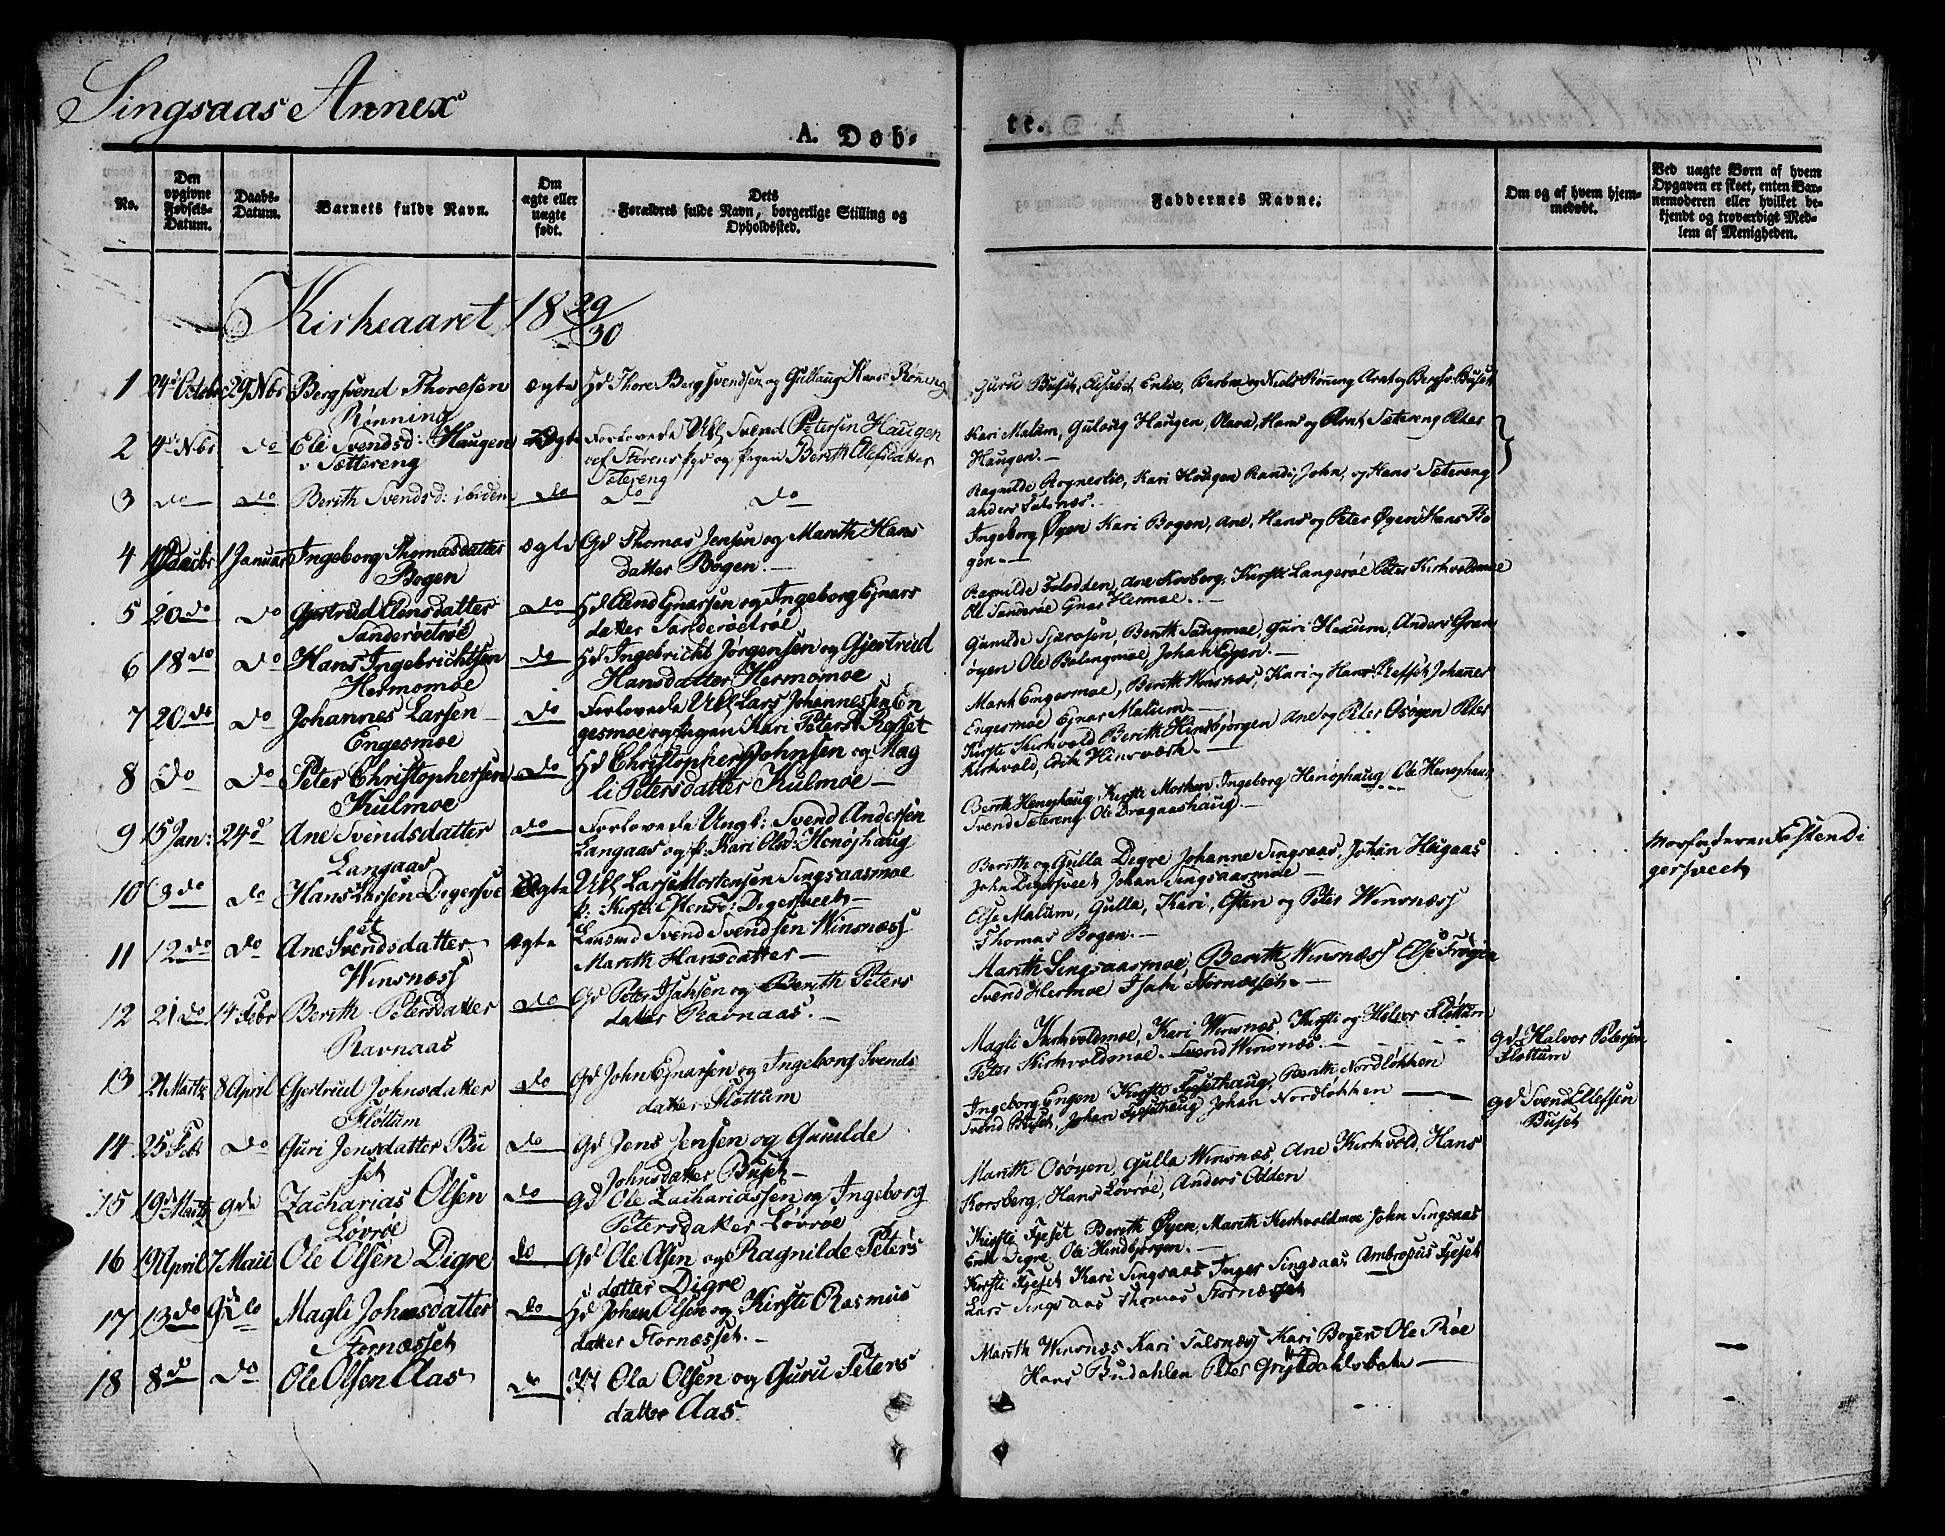 Singsaas Annex
A. Døb-
te.
No.
Den opgivne Fødsels-Datum.
Daabs-Datum.
Barnets fulde Navn.
Om ægte eller uægte født.
Dets Forældres fulde Navn, borgerlige Stilling og Opholdssted.
Faddernes Navne.
Om og af hvem hjem-
medøbt.
Ved uægte Børn af hvem
Opgaven er skeet, enten Bar-
nemoderen eller hvilket be-
kjendt og troværdigt Med-
lem af Menigheden.
Kirkeaaret 1829/30
1 24d Octobr 29 Nbr Bergsvend Thoresen ægte Hd Thore Bergsvendsen og Gullaug Hansd Rønning
Rønning
Guru Buset, Elisabet Enlie, Barbra og Niels Rønning Arnt og Bergsv. Buset
2 4de Nbr do Eli Svendsd: Haugen ægte Forlovede Ukl Svend Petersen Haugen
v Sættereng
og Pigen Berith Ellefsdatter
Sætereng
Kari Malum, Guloug Haugen, Olava, Hans og Arnt Sætereng Peter
Haugen.
3 do do Berith Svendsd: ibidem do do do
Ragnilde Rogneslie, Kari Haugen Randi, John, og Hans Sætereng
anders Talsnæs.
4 Decbr 1 Januar Ingeborg Thomasdatter ægte Gd Thomas Jensen og Marith Hans
Bogen
datter Bogen.
Ingeborg Øyen Kari Bogen, Ane, Hans og Peter Øyen Hans Bo
gen.
5 20 do do Gjertrud Elensdatter do Hd Elend Ejnarsen og Ingeborg Ejnars
Sanderøetrøe
datter Sanderøetrøe
Ragnilde Ane Korberg, Kirsti Langerøe Peter Kirkvoldmoe
Ole Sanderøe Ejnar Hermoe.
6 18 do do Hans Ingebrichtsen do Hd Ingebricht Jørgensen og Gjertrud
Hermomoe
Hansdatter Hermomoe
Gunilde Berith Guri Hexum, Anders Gran
øyen Ole Johan Eggen.
7 20 do do Johannes Larsen do Forlovede Ukl Lars Johannessen En
Engesmoe
gesmoe og Pigen Kari Petersd.
Marit Engesmoe, Berith Winsnæs, Kari og Hans Johannes
Engesmoe Ejnar Malum.
8 do do Peter Christophersen do Hd Christopher Johnsen og Mag
Kulmoe
li Petersdatter Kulmoe
Kirsti Kirkvold Berith Hinsbjørgen Ane og Peter Osøyen Peter
Kirkvold, Erik Hinsværk.
9 15 Jan: 24d Ane Svendsdatter do Forlovede Ungk: Svend Andersen
Langaas
Langaas og P: Kari Olsd: Henøjhaug
Berith Henøjhaug, Kirsti Morken, Ingeborg Henøjhaug, Ole Henøjhaug
Svend Sætereng Ole Dragaashaug.
10 3 do do Hans Larsen Digersve uægte Ukl Lars Mortensen Singsaasmoe
et
P: Kirsti Estensd: Digersveet
Berith og Gulla Digre Johanne Singsaas, Johan Hagaas
John Digersveet Johan Singsaasmoe
Morfaderen: Esten Di
gersveet
11 12 do do Ane Svendsdatter ægte Lensmd Svend Svendsen Winsnæss
Winsnæss
Marith Hansdatter
Else Malum, Gulla, Kari, Esten og Peter Winsnæss
Thomas Bogen.
12 21 do 14 Febr Berith Petersdatter do Gd Peter Isaksen og Berith Peters
Ravnaas
datter Ravnaas.
Marith Singsaasmoe, Berith Winsnæss Else Frøjen
Svend Hermoe Isak Stornæsset.
13 21 Martz 8 April Gjertrud Johnsdatter do Gd John Ejnarsen og Ingeborg Svends
Fløttum
datter Fløttum
Magli Kirkvoldmoe, Kari Winsnæs, Kirsti og Halvor Fløttum
Peter Kirkvoldmoe. Svend Winsnæs.
Gd Halvor Petersen
Fløttum
14 25 Feb do Guri Jensdatter Bu do Gd Jens Jensen og Gunilde
set
Johnsdatter Buset
Ingeborg Engen Kirsti Fjesethaug, Berith Nordløkken
Svend Buset, Johan Fjesethaug Johan Nordløkken
Gd Svend Ellefsen
Buset
15 19de Martz 9de Zacharias Olsen do Gd Ole Zachariassen og Ingeborg
Løvrøe
Petersdatter Løvrøe
Marith Osøyen, Gulla Winsnæs, Ane Kirkvold, Hans
Korsberg, Hans Løvrøe, Anders Odden
16 19 April 7 Maii Ole Olsen Digre do Gd Ole Olsen og Ragnilde Peters
datter Digre
Kirsti Fjeset Berith Øyen, Marith Kirkvoldmoe John Singsaas
Erik Digre Ole Hindbjørgen.
17 13 do do Magli Johansdatter do Hd Johan Olsen og Kirsti Rasmus
Stornæsset
datter Stornæsset.
Kirsti Fjeset Kari Singsaas Inger Singsaas Ambrosius Fjeset
Lars Singsaas Thomas Stornæsset
18 8d do Ole Olsen Aas do Hd Ola Olsen og Guru Peters
datter Aas
Marith Winsnæs Kari Talsnæss Kari Bogen Ole Røe
Hans Budahlen Peter